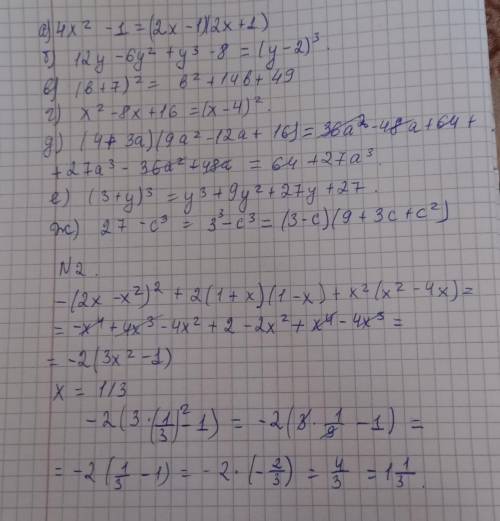 а) 4x² - 1 = (2x - 1)(2x + 1)
б) 12y - 6y² + y³ - 8 = (y - 2)³.
в) (в + 7)² = в² + 14в + 49
г) x² - 8x + 16 = (x - 4)².
д) (4 + 3a)(9a² - 12a + 16) = 36a² - 48a + 64 +
+ 27a³ - 36a² + 48a = 64 + 27a³.
е) (3 + y)³ = y³ + 9y² + 27y + 27.
ж) 27 - c³ = 3³ - c³ = (3 - c)(9 + 3c + c²)
N2.
-(2x - x²)² + 2(1 + x)(1 - x) + x²(x² - 4x) =
= -x⁴ + 4x³ - 4x² + 2 - 2x² + x⁴ - 4x³ =
= -2(3x² - 1)
x = 1/3
-2(3 · (1/3)² - 1) = -2(3 · 1/9 - 1) =
= -2(1/3 - 1) = -2 · (-2/3) = 4/3 = 1 1/3.